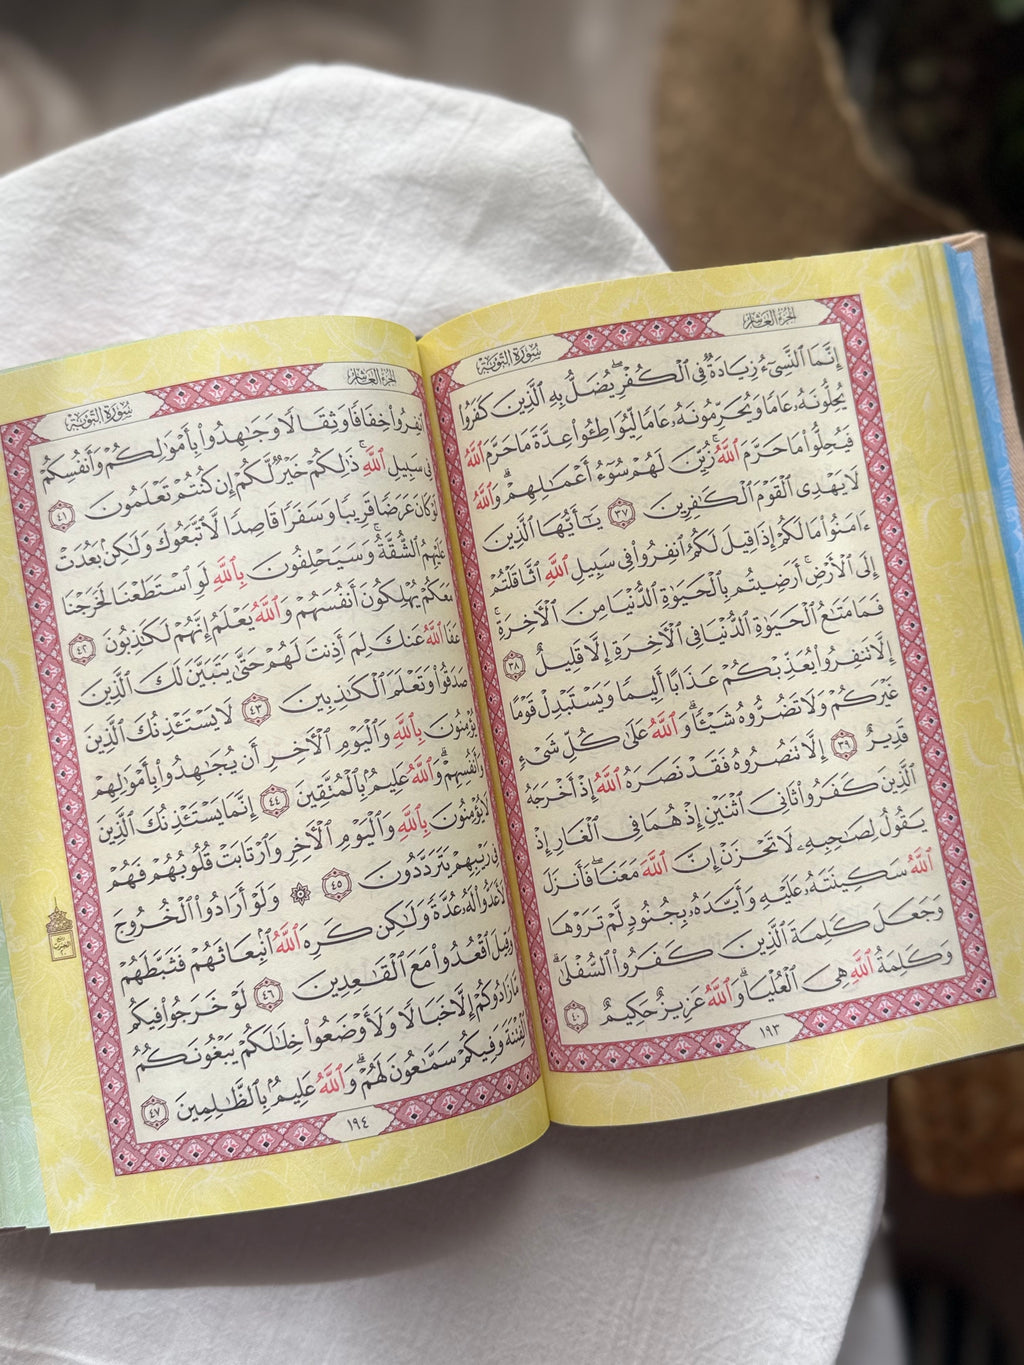 سُورَةُ التَّوۡبَةِ
الجُزْءُ العَاشِرُ
إِنَّمَا ٱلنَّسِيٓءُ زِيَادَةٞ فِي ٱلۡكُفۡرِۖ يُضَلُّ بِهِ ٱلَّذِينَ كَفَرُواْ
يُحِلُّونَهُۥ عَامٗا وَيُحَرِّمُونَهُۥ عَامٗا لِّيُوَاطِـُٔواْ عِدَّةَ مَا حَرَّمَ ٱللَّهُ
فَيُحِلُّواْ مَا حَرَّمَ ٱللَّهُۚ زُيِّنَ لَهُمۡ سُوٓءُ أَعۡمَٰلِهِمۡۗ وَٱللَّهُ
لَا يَهۡدِي ٱلۡقَوۡمَ ٱلۡكَٰفِرِينَ ٣٧ يَٰٓأَيُّهَا ٱلَّذِينَ
ءَامَنُواْ مَا لَكُمۡ إِذَا قِيلَ لَكُمُ ٱنفِرُواْ فِي سَبِيلِ ٱللَّهِ ٱثَّاقَلۡتُمۡ
إِلَى ٱلۡأَرۡضِۚ أَرَضِيتُم بِٱلۡحَيَوٰةِ ٱلدُّنۡيَا مِنَ ٱلۡأٓخِرَةِۚ
فَمَا مَتَٰعُ ٱلۡحَيَوٰةِ ٱلدُّنۡيَا فِي ٱلۡأٓخِرَةِ إِلَّا قَلِيلٌ ٣٨
إِلَّا تَنفِرُواْ يُعَذِّبۡكُمۡ عَذَابًا أَلِيمٗا وَيَسۡتَبۡدِلۡ قَوۡمًا
غَيۡرَكُمۡ وَلَا تَضُرُّوهُ شَيۡـٔٗاۗ وَٱللَّهُ عَلَىٰ كُلِّ شَيۡءٖ
قَدِيرٌ ٣٩ إِلَّا تَنصُرُوهُ فَقَدۡ نَصَرَهُ ٱللَّهُ إِذۡ أَخۡرَجَهُ
ٱلَّذِينَ كَفَرُواْ ثَانِيَ ٱثۡنَيۡنِ إِذۡ هُمَا فِي ٱلۡغَارِ إِذۡ
يَقُولُ لِصَٰحِبِهِۦ لَا تَحۡزَنۡ إِنَّ ٱللَّهَ مَعَنَاۖ فَأَنزَلَ
ٱللَّهُ سَكِينَتَهُۥ عَلَيۡهِ وَأَيَّدَهُۥ بِجُنُودٖ لَّمۡ تَرَوۡهَا
وَجَعَلَ كَلِمَةَ ٱلَّذِينَ كَفَرُواْ ٱلسُّفۡلَىٰۗ
وَكَلِمَةُ ٱللَّهِ هِيَ ٱلۡعُلۡيَاۗ وَٱللَّهُ عَزِيزٌ حَكِيمٌ ٤٠
١٩٣
الجُزْءُ العَاشِرُ
سُورَةُ التَّوۡبَةِ
ٱنفِرُواْ خِفَافٗا وَثِقَالٗا وَجَٰهِدُواْ بِأَمۡوَٰلِكُمۡ وَأَنفُسِكُمۡ
فِي سَبِيلِ ٱللَّهِۚ ذَٰلِكُمۡ خَيۡرٞ لَّكُمۡ إِن كُنتُمۡ تَعۡلَمُونَ ٤١
لَوۡ كَانَ عَرَضٗا قَرِيبٗا وَسَفَرٗا قَاصِدٗا لَّٱتَّبَعُوكَ وَلَٰكِنۢ بَعُدَتۡ
عَلَيۡهِمُ ٱلشُّقَّةُۚ وَسَيَحۡلِفُونَ بِٱللَّهِ لَوِ ٱسۡتَطَعۡنَا لَخَرَجۡنَا
مَعَكُمۡ يُهۡلِكُونَ أَنفُسَهُمۡ وَٱللَّهُ يَعۡلَمُ إِنَّهُمۡ لَكَٰذِبُونَ ٤٢
عَفَا ٱللَّهُ عَنكَ لِمَ أَذِنتَ لَهُمۡ حَتَّىٰ يَتَبَيَّنَ لَكَ ٱلَّذِينَ
صَدَقُواْ وَتَعۡلَمَ ٱلۡكَٰذِبِينَ ٤٣ لَا يَسۡتَـٔۡذِنُكَ ٱلَّذِينَ
يُؤۡمِنُونَ بِٱللَّهِ وَٱلۡيَوۡمِ ٱلۡأٓخِرِ أَن يُجَٰهِدُواْ بِأَمۡوَٰلِهِمۡ
وَأَنفُسِهِمۡۗ وَٱللَّهُ عَلِيمُۢ بِٱلۡمُتَّقِينَ ٤٤ إِنَّمَا يَسۡتَـٔۡذِنُكَ ٱلَّذِينَ
لَا يُؤۡمِنُونَ بِٱللَّهِ وَٱلۡيَوۡمِ ٱلۡأٓخِرِ وَٱرۡتَابَتۡ قُلُوبُهُمۡ فَهُمۡ
فِي رَيۡبِهِمۡ يَتَرَدَّدُونَ ٤٥ ۞ وَلَوۡ أَرَادُواْ ٱلۡخُرُوجَ
لَأَعَدُّواْ لَهُۥ عُدَّةٗ وَلَٰكِن كَرِهَ ٱللَّهُ ٱنۢبِعَاثَهُمۡ فَثَبَّطَهُمۡ
وَقِيلَ ٱقۡعُدُواْ مَعَ ٱلۡقَٰعِدِينَ ٤٦ لَوۡ خَرَجُواْ فِيكُم
مَّا زَادُوكُمۡ إِلَّا خَبَالٗا وَلَأَوۡضَعُواْ خِلَٰلَكُمۡ يَبۡغُونَكُمُ
ٱلۡفِتۡنَةَ وَفِيكُمۡ سَمَّٰعُونَ لَهُمۡۗ وَٱللَّهُ عَلِيمُۢ بِٱلظَّٰلِمِينَ ٤٧
١٩٤